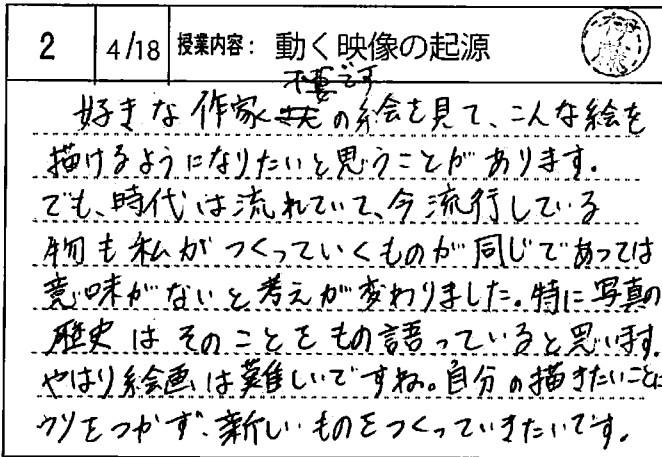 2 4/18 授業内容: 動く映像の起源
不要です
好きな作家さんの絵を見て、こんな絵を
描けるようになりたいと思うことがあります。
でも、時代は流れていて、今流行している
物も私がつくっていくものが同じであっては
意味がないと考えが変わりました。特に写真の
歴史はそのことをもの語っていると思います。
やはり絵画は難しいですね。自分の描きたいことに
ウソをつかず、新しいものをつくっていきたいです。